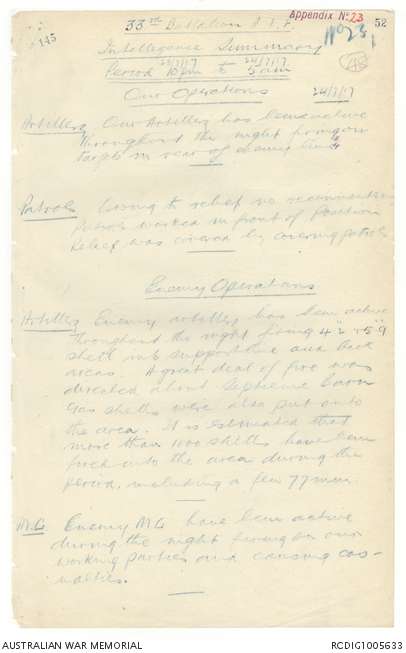 Appendix No. 23
52
145
No 23
33rd Battalion A.I.F.
Intelligence Summary
23/7/17 24/7/17
Period 10 pm to 5 am
Our Operations 24/7/17
Artillery Our Artillery has been active
throughout the night firing on
targets in rear of enemy lines
Patrols Owing to relief no reconnaissance
patrols worked in front of Position
Relief was covered by covering patrols
Enemy Operations
Artillery Enemy artillery has been active
throughout the night firing 4.2" & 5.9"
shells into support line and back
areas. A great deal of fire was
directed about Septieme Barn
Gas shells were also put into
the area. It is estimated that
more than 1000 shells have been
fired into the area during the
period, including a few 77 mm.
M.G. Enemy M.G. have been active
during the night firing on our
working parties and causing cas-
ualties.
AUSTRALIAN WAR MEMORIAL
RCDIG1005633